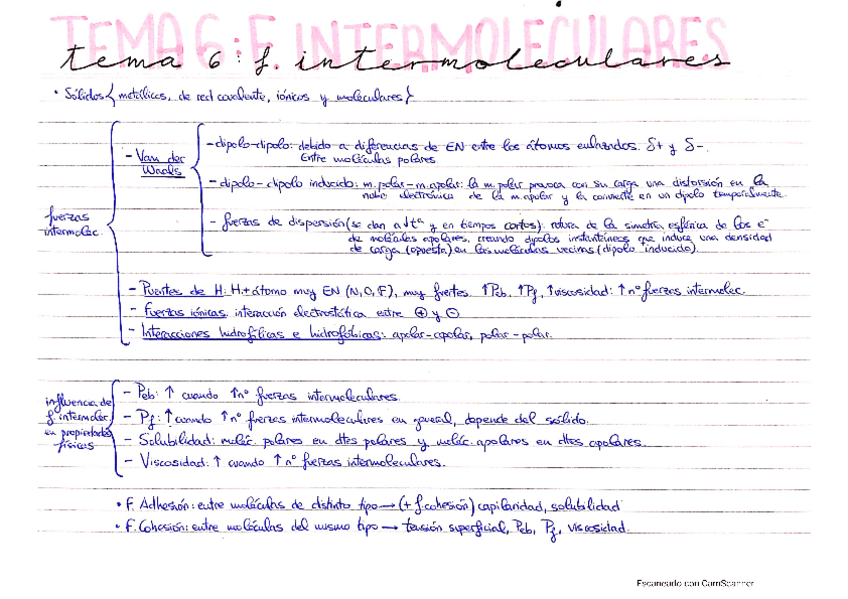 TEMA 6: F. INTERMOLECULARES
tema 6: f. intermoleculares
• Sólidos { metálicos, de red covalente, iónicos y moleculares }
fuerzas
intermolec.
- Van der
Waals
- dipolo-dipolo: debido a diferencias de EN entre los átomos enlazados. δ+ y δ-.
Entre moléculas polares
- dipolo-dipolo inducido: m. polar-m. apolar: la m. polar provoca con su carga una distorsión en la
nube electrónica de la m. apolar y la convierte en un dipolo temporalmente.
- fuerzas de dispersión (se dan a ↓tª y en tiempos cortos): rotura de la simetría esférica de los e⁻
de moléculas apolares, creando dipolos instantáneos que induce una densidad
de carga (opuesta) en las moléculas vecinas (dipolo inducido).
- Puentes de H: H + átomo muy EN (N, O, F), muy fuertes. ↑Peb, ↑Pf, ↑viscosidad: ↑nº fuerzas intermolec.
- Fuerzas iónicas: interacción electrostática entre ⊕ y ⊖
- Interacciones hidrofílicas e hidrofóbicas: apolar-apolar, polar-polar.
influencia de
f. intermolec.
en propiedades
físicas
- Peb: ↑ cuando ↑nº fuerzas intermoleculares.
- Pf: ↑ cuando ↑nº fuerzas intermoleculares en general, depende del sólido.
- Solubilidad: moléc. polares en dtes polares y moléc. apolares en dtes apolares.
- Viscosidad: ↑ cuando ↑ nº fuerzas intermoleculares.
• F. Adhesión: entre moléculas de distinto tipo → (+ f. cohesión) capilaridad, solubilidad
• F. Cohesión: entre moléculas del mismo tipo → tensión superficial, Peb, Pf, viscosidad.
Escaneado con CamScanner